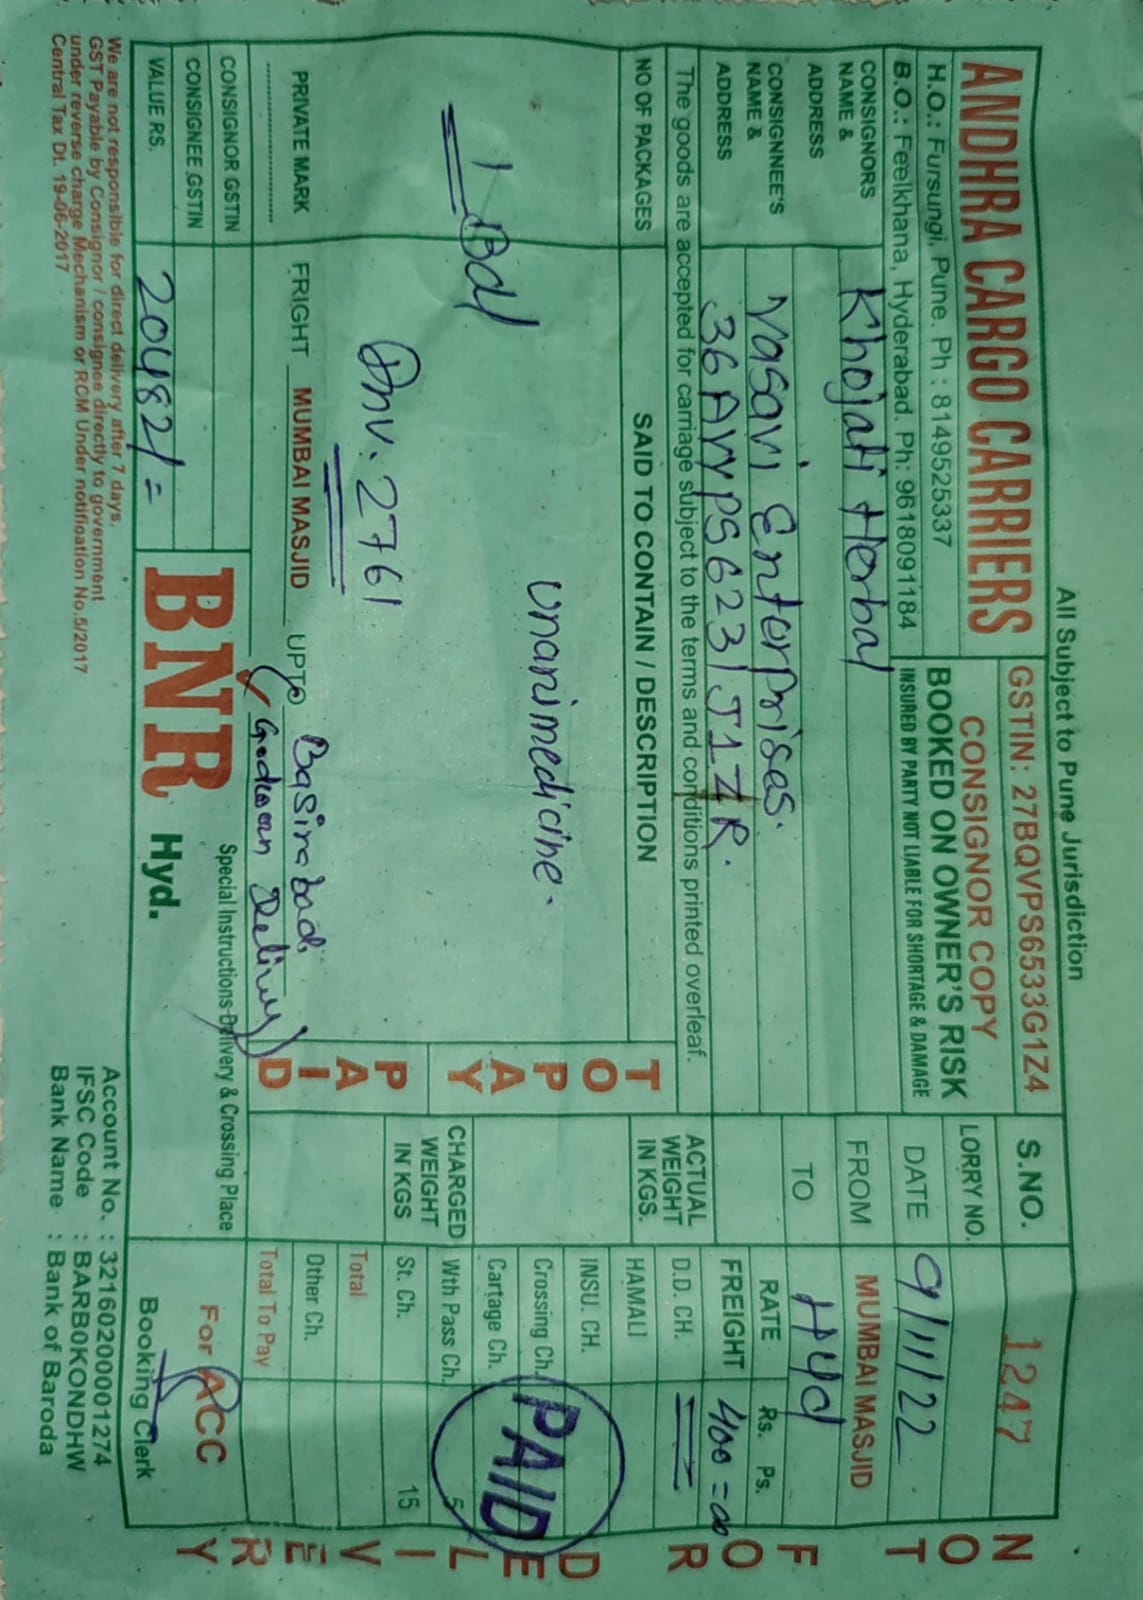 All Subject to Pune Jurisdiction
ANDHRA CARGO CARRIERS
H.O.: Fursungi, Pune. Ph : 8149525337
B.O.: Feelkhana, Hyderabad. Ph: 9618091184
GSTIN: 27BQVPS6533G1Z4
CONSIGNOR COPY
BOOKED ON OWNER'S RISK
INSURED BY PARTY NOT LIABLE FOR SHORTAGE & DAMAGE
S.NO. 1247
LORRY NO.
DATE 9/11/22
FROM MUMBAI MASJID
TO Hyd
CONSIGNORS NAME & ADDRESS
Khojati Herbal
CONSIGNNEE'S NAME & ADDRESS
Vasavi Enterprises.
36AVYPS6231J1ZR.
The goods are accepted for carriage subject to the terms and conditions printed overleaf.
NO OF PACKAGES
SAID TO CONTAIN / DESCRIPTION
ACTUAL WEIGHT IN KGS.
CHARGED WEIGHT IN KGS
RATE Rs. Ps.
FREIGHT 400=00
D.D. CH.
HAMALI
INSU. CH.
Crossing Ch.
Cartage Ch.
Wth Pass Ch. 5
St. Ch. 15
Total
Other Ch.
Total To Pay
PAID
1 Bdl
unanimedicine.
Inv. 2761
TO PAY
PAID
PRIVATE MARK
FRIGHT MUMBAI MASJID UPTO Basirabad.
(Godown Delivery)
CONSIGNOR GSTIN
CONSIGNEE GSTIN
VALUE RS. 20482/=
BNR Hyd.
Special Instructions-Delivery & Crossing Place
For ACC
Booking Clerk
We are not responsible for direct delivery after 7 days.
GST Payable by Consignor / consignee directly to government
under reverse charge Mechanism or RCM Under notification No.5/2017
Central Tax Dt. 19-06-2017
Account No. : 32160200001274
IFSC Code : BARB0KONDHW
Bank Name : Bank of Baroda
NOT FOR DELIVERY